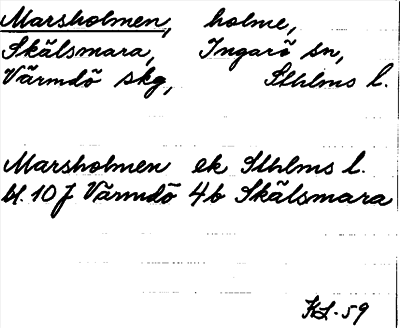 Marsholmen, holme,
Skälsmara, Ingarö sn,
Värmdö skg, Sthlms l.
Marsholmen ek Sthlms l.
bl. 10 J Värmdö 4b Skälsmara
KL-59